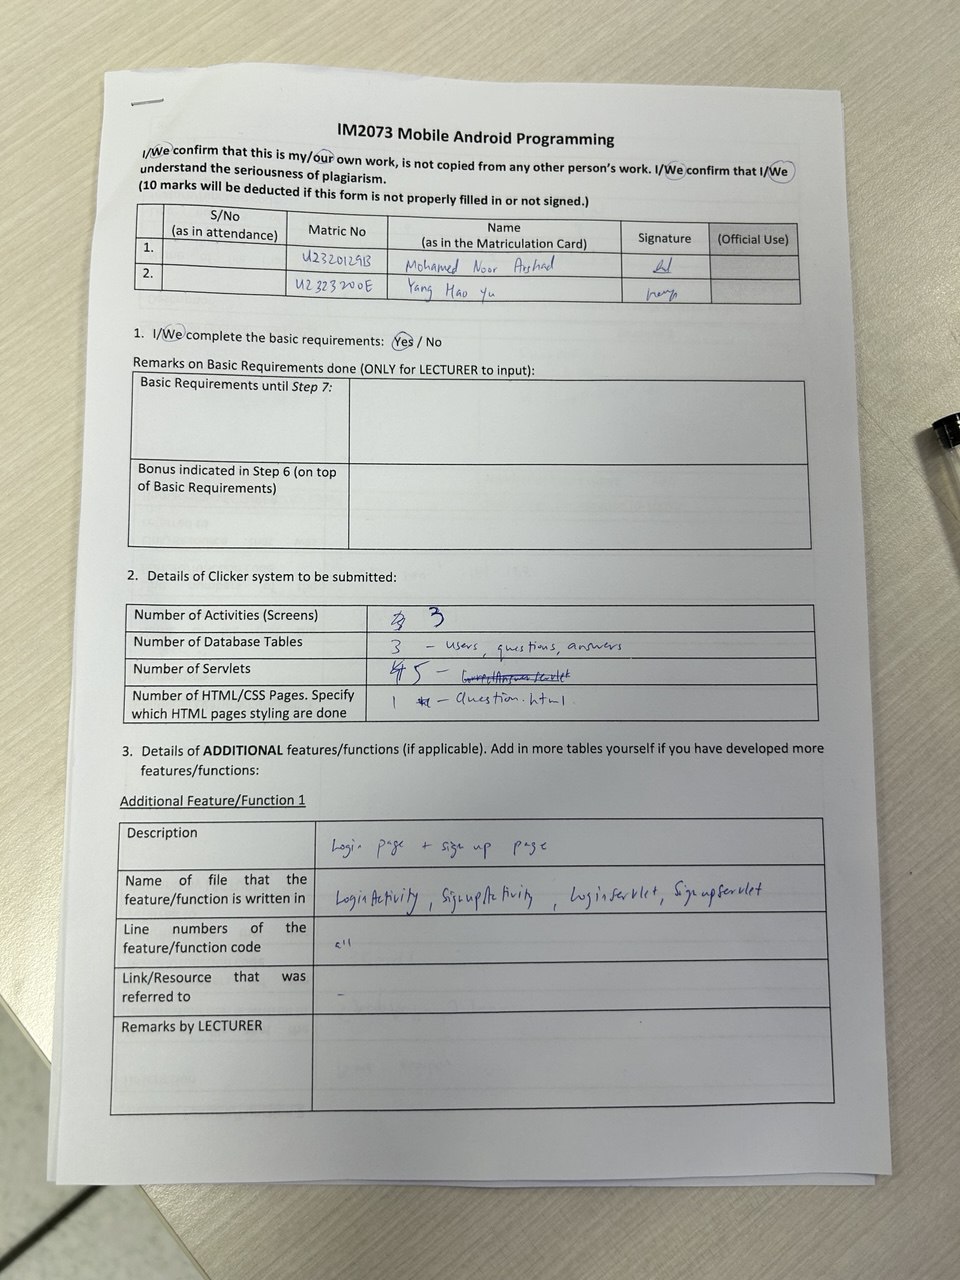 IM2073 Mobile Android Programming
I/We confirm that this is my/our own work, is not copied from any other person's work. I/We confirm that I/We
understand the seriousness of plagiarism.
(10 marks will be deducted if this form is not properly filled in or not signed.)
S/No (as in attendance) Matric No Name (as in the Matriculation Card) Signature (Official Use)
1. U2320129B Mohamed Noor Arshad
2. U2323200E Yang Hao Yu
1. I/We complete the basic requirements: Yes / No
Remarks on Basic Requirements done (ONLY for LECTURER to input):
Basic Requirements until Step 7:
Bonus indicated in Step 6 (on top
of Basic Requirements)
2. Details of Clicker system to be submitted:
Number of Activities (Screens) 3
Number of Database Tables 3 - users, questions, answers
Number of Servlets 5 -
Number of HTML/CSS Pages. Specify 1 - Question.html
which HTML pages styling are done
3. Details of ADDITIONAL features/functions (if applicable). Add in more tables yourself if you have developed more
features/functions:
Additional Feature/Function 1
Description Login page + sign up page
Name of file that the
feature/function is written in LoginActivity, SignupActivity, LoginServlet, SignupServlet
Line numbers of the
feature/function code all
Link/Resource that was
referred to -
Remarks by LECTURER